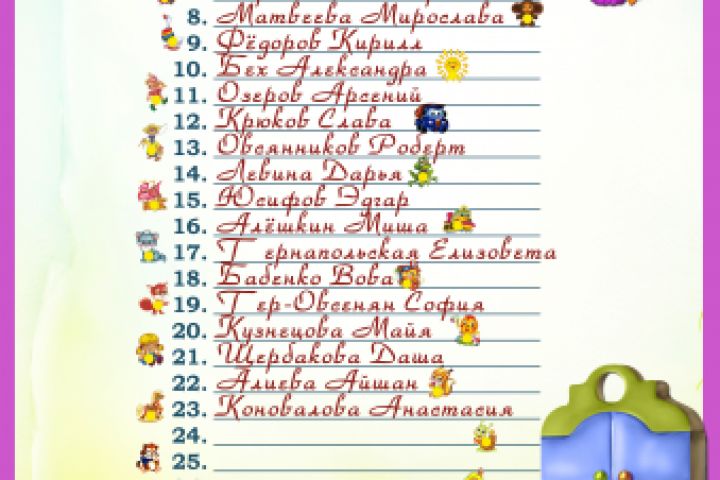 8. Матвеева Мирослава
9. Фёдоров Кирилл
10. Бех Александра
11. Озеров Арсений
12. Крюков Слава
13. Овсянников Роберт
14. Левина Дарья
15. Юсифов Эдгар
16. Алёшкин Миша
17. Т ернапольская Елизовета
18. Бабенко Вова
19. Т ер-Овсенян София
20. Кузнецова Майя
21. Щербакова Даша
22. Алиева Айшан
23. Коновалова Анастасия
24.
25.